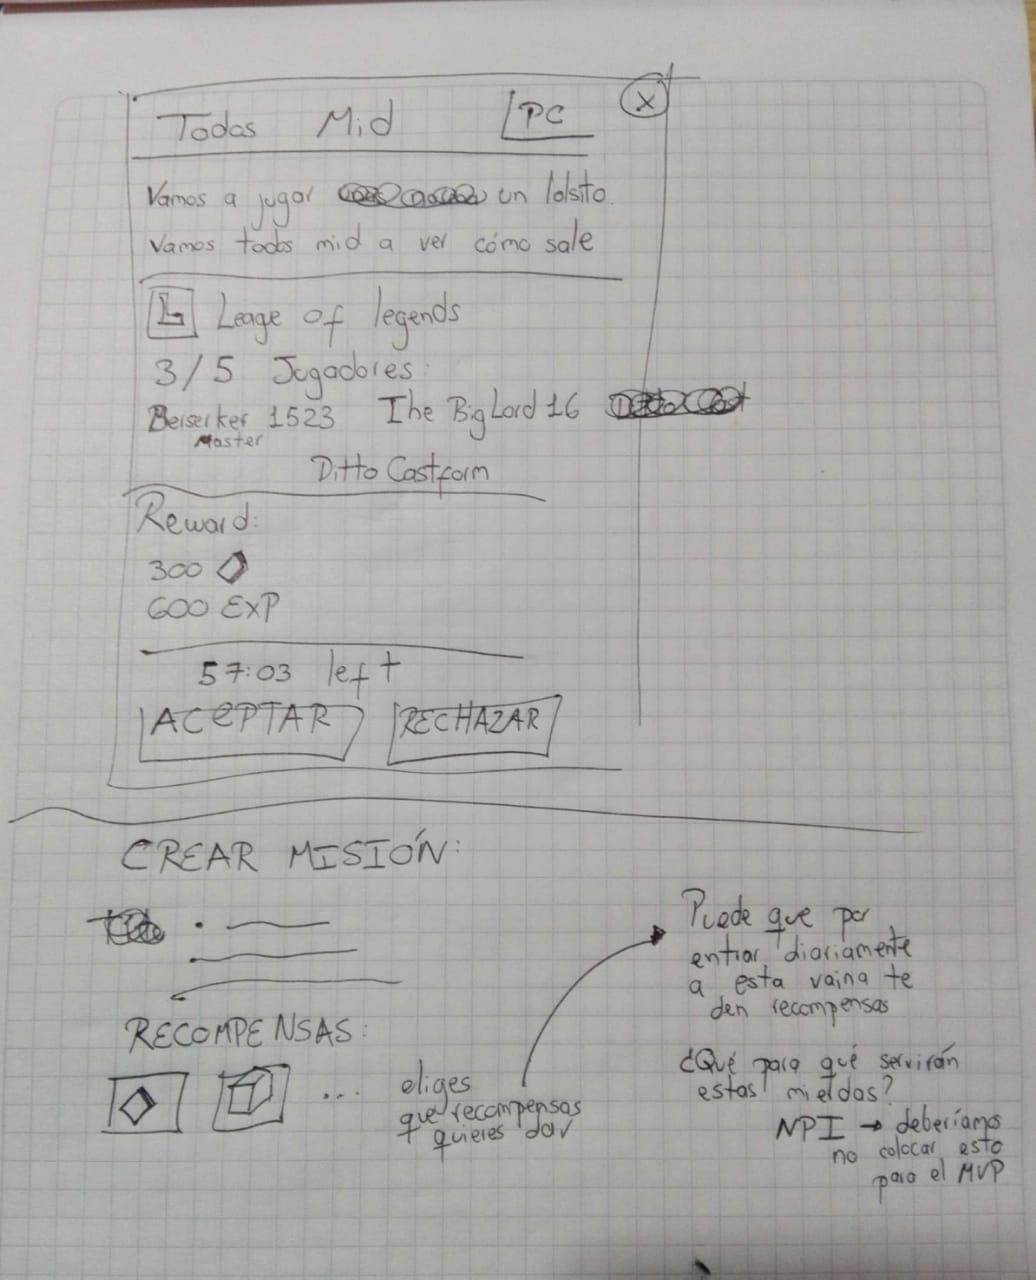 Todos Mid PC X
Vamos a jugar un lolsito.
Vamos todos mid a ver cómo sale
L Leage of legends
3/5 Jugadores:
Berserker 1523 The Big Lord 16
Master
Ditto Castform
Reward:
300
600 EXP
57:03 left
ACEPTAR RECHAZAR
CREAR MISIÓN:
RECOMPENSAS:
... eliges
que recompensas
quieres dar
Puede que por
entrar diariamente
a esta vaina te
den recompensas
¿Qué para qué servirán
estas mierdas?
NPI → deberíamos
no colocar esto
para el MVP